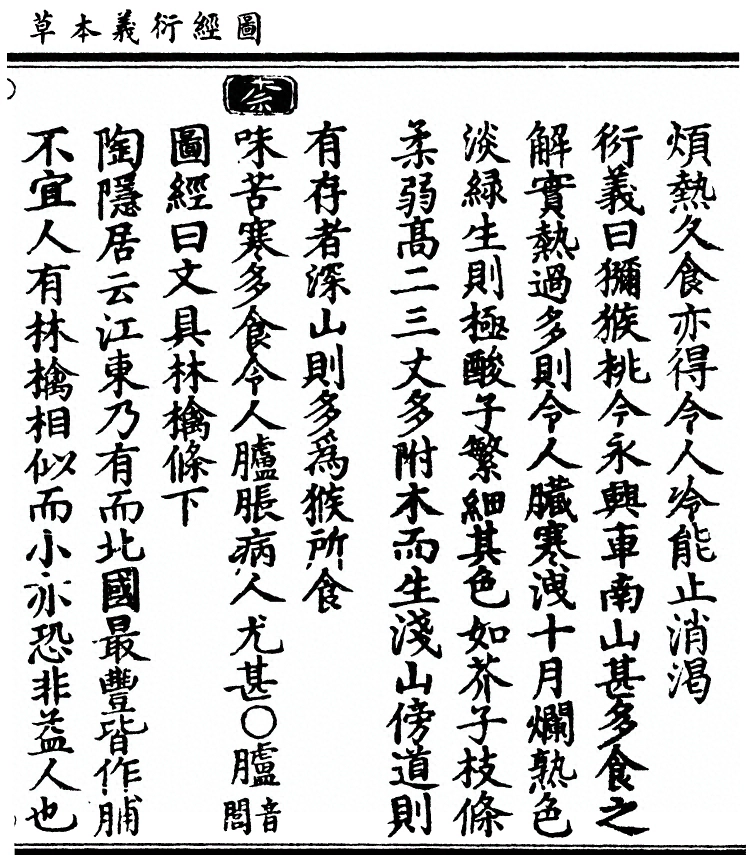 圖經衍義本草
煩熱久食亦得令人冷能止消渴
衍義曰獼猴桃今永興車南山甚多食之
解實熱過多則令人臟寒洩十月爛熟色
淡緑生則極酸子繁細其色如芥子枝條
柔弱髙二三丈多附木而生淺山傍道則
有存者深山則多爲猴所食
柰
味苦寒多食令人臚脹病人尤甚〇臚音閭
圖經曰文具林檎條下
陶隱居云江東乃有而北國最豐皆作脯
不宜人有林檎相似而小亦恐非益人也